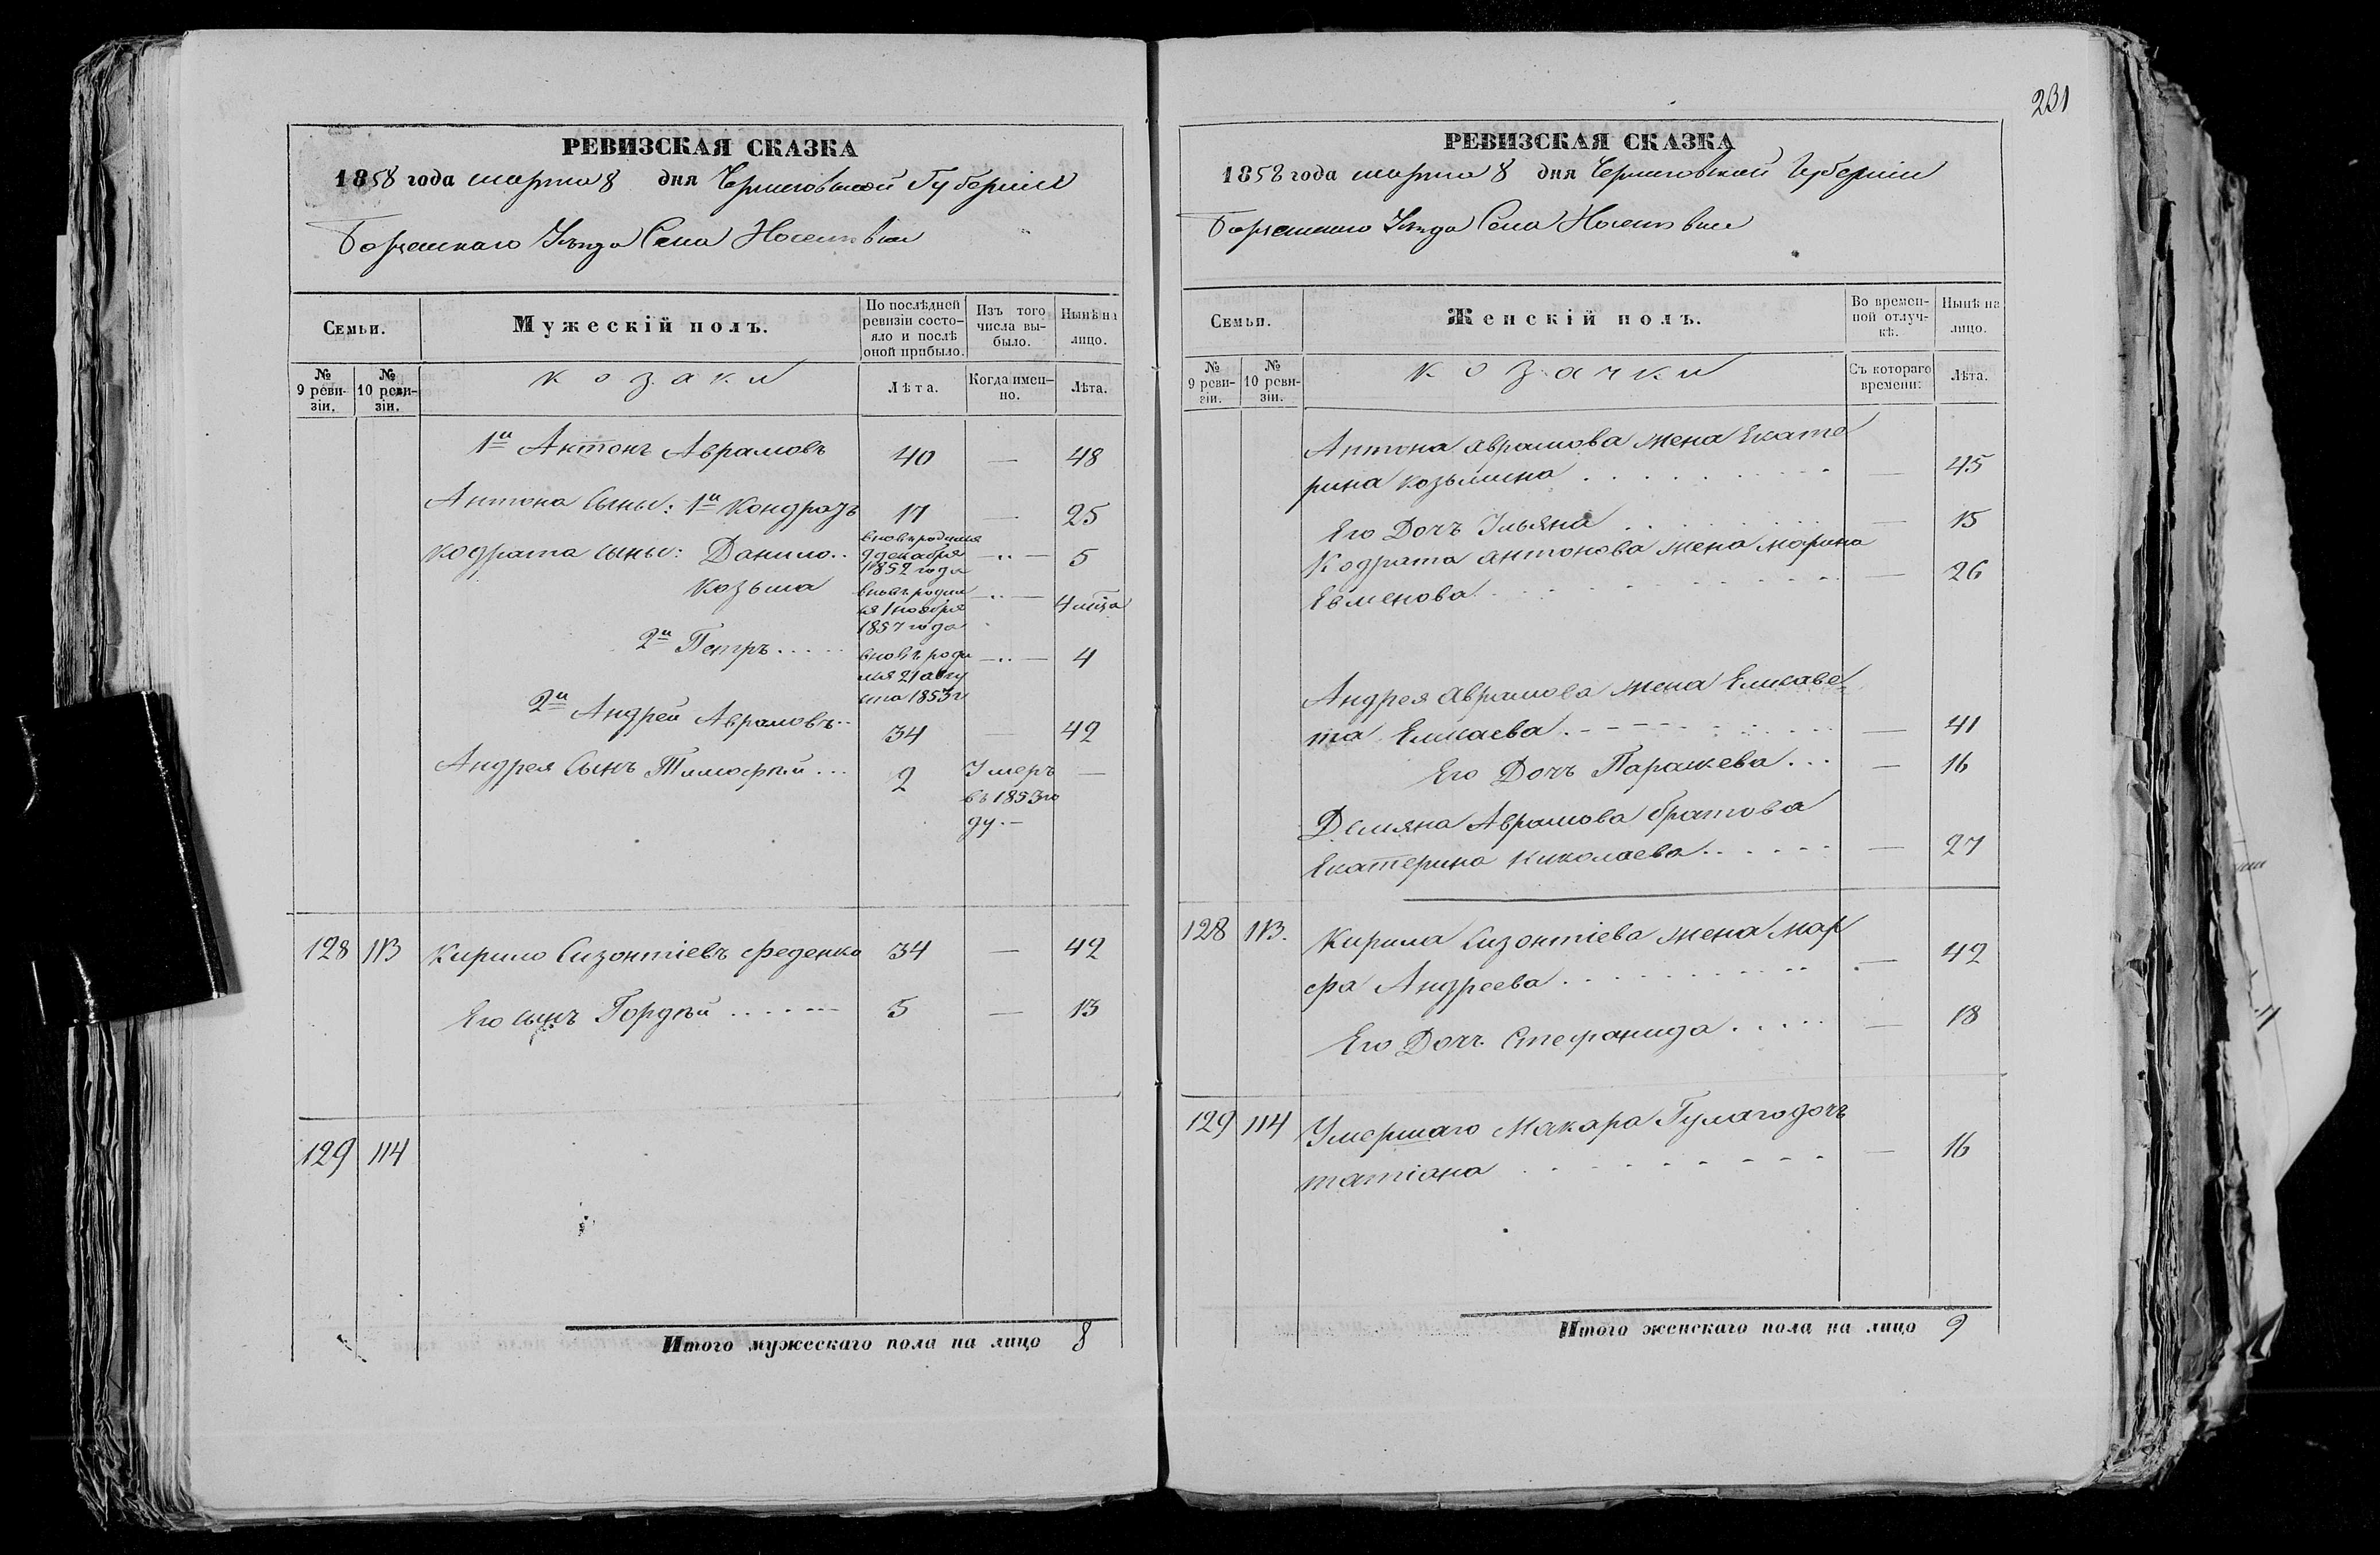 231
РЕВИЗСКАЯ СКАЗКА
1858 года марта 8 дня Черниговской Губерніи
Борзенскаго Уѣзда Села Носелевки
Семьи.
Мужескій полъ.
По послѣдней ревизіи состо-
яло и послѣ оной прибыло.
Изъ того числа вы-
было.
Нынѣ на лицо.
№ 9 реви-
зіи.
№ 10 реви-
зіи.
козаки
Лѣта.
Когда имен-
но.
Лѣта.
1й Антонъ Аврамовъ 40 — 48
Антона Сыны: 1й Кондратъ 17 — 25
Кодрата сыны: Данило.. вновь родился 9 декабря 1852 года —..— 5
Козьма вновь родил
ся 1 ноября 1857 года —..— 4 мѣца
2й Петръ..... вновь роди
лся 21 авгу
ста 1853 г —..— 4
2й Андрей Аврамовъ.. 34 — 42
Андрея Сынъ Тимофѣй... 2 Умеръ —
въ 1853 го
ду.—
128 113 Кирило Сизонтіевъ Феденко 34 — 42
Его сынъ Гордѣй ....... 5 — 13
129 114
Итого мужескаго пола на лицо 8
РЕВИЗСКАЯ СКАЗКА
1858 года марта 8 дня Черниговской Губерніи
Борзенскаго Уѣзда Села Носелевки
Семьи.
Женскій полъ.
Во времен-
ной отлуч-
кѣ.
Нынѣ на лицо.
№ 9 реви-
зіи.
№ 10 реви-
зіи.
козачки
Съ котораго времени:
Лѣта.
Антона Аврамова жена Екате
рина Козьмина — 45
Его Дочь Ульяна — 15
Кодрата Антонова жена Марина
Евменова — 26
Андрея Аврамова жена Елисаве-
та Елисаева — 41
Его Дочь Параскева... — 16
Демяна Аврамова братова
Екатерина Николаева — 27
128 113. Кирила Сизонтіева жена Мар
фа Андреева — 42
Его Дочь Стефанида..... — 18
129 114 Умершаго Макара Гулаго дочь
татіана — 16
Итого женскаго пола на лицо 9